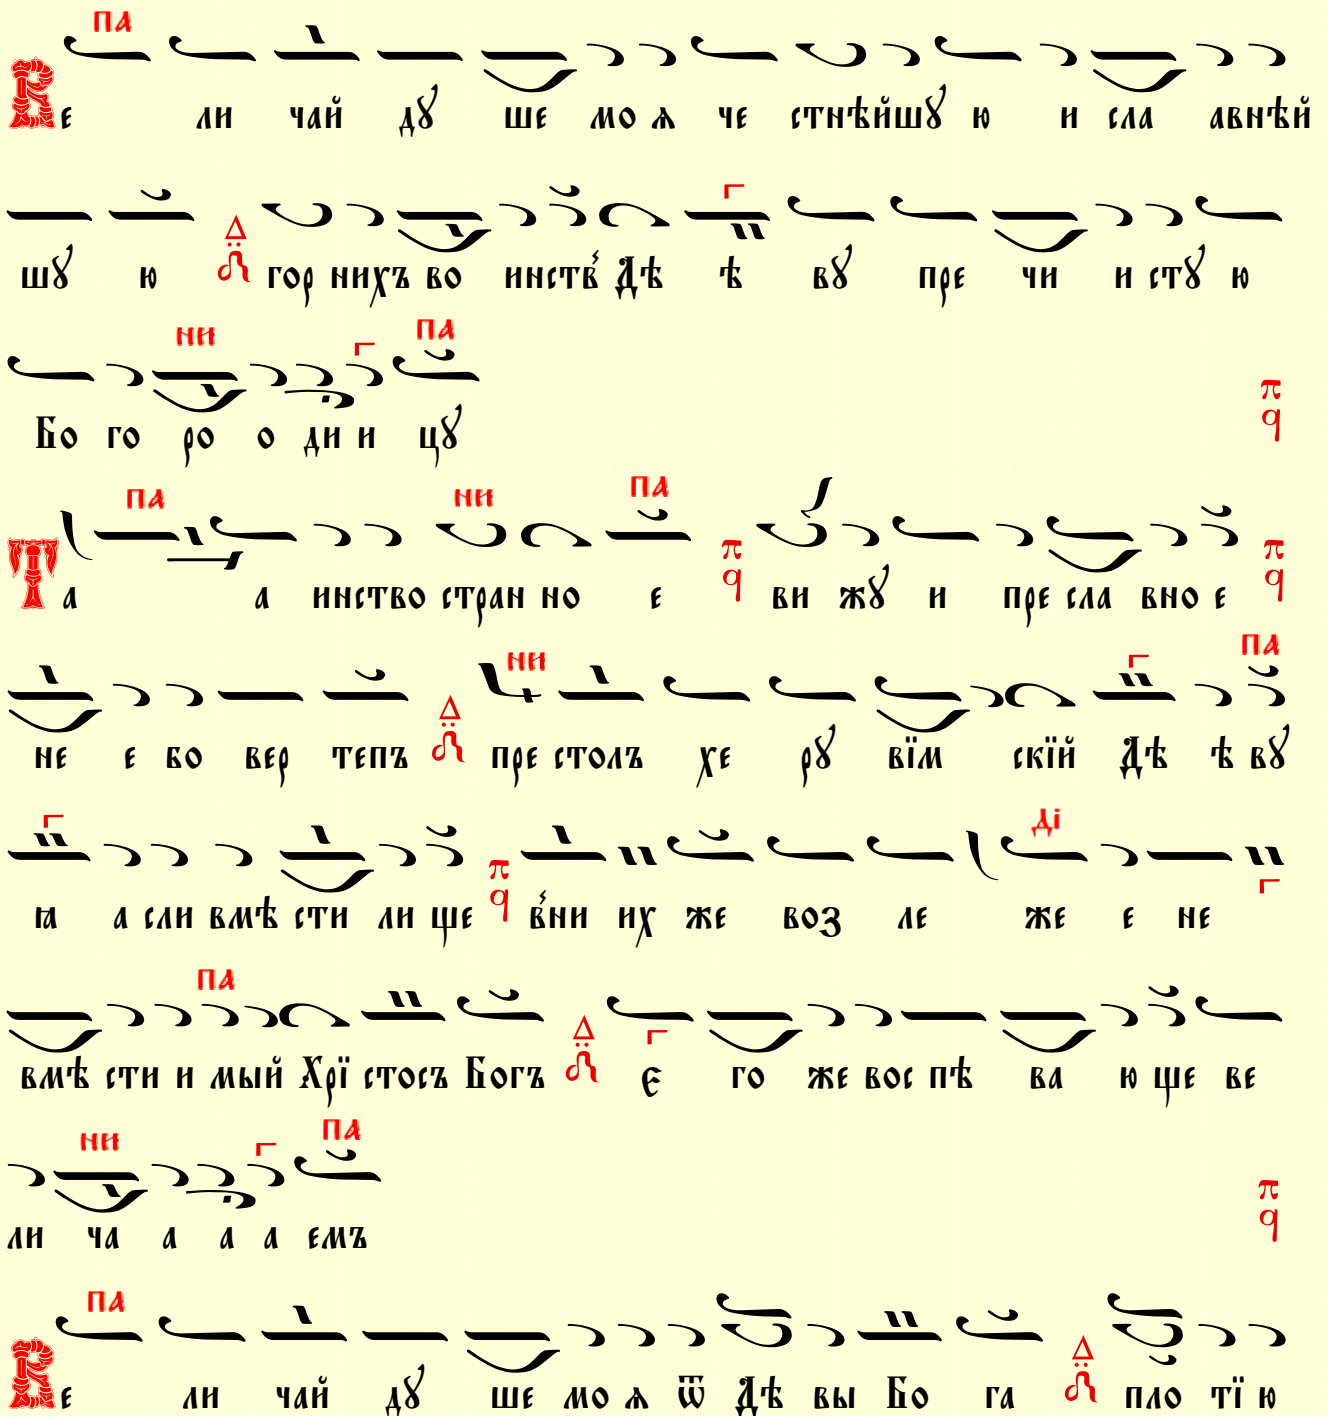 ПА
Ве ли чай дꙋ ше мо ѧ че стнѣйшꙋ ю и сла авнѣй
Г
шꙋ ю Δ гор нихъ во инств́ Дѣ ѣ вꙋ пре чи и стꙋ ю
НИ Г ПА
Бо го ро о ди и цꙋ π q
ПА НИ ПА
Та а инство стран но е π q ви жꙋ и пре сла вно е π q
НИ Г ПА
не е бо вер тепъ Δ пре столъ хе рꙋ вїм скїй Дѣ ѣ вꙋ
Г Ді
ꙗ а сли вмѣ сти ли ще π q в́ни их же воз ле же е не
Г
ПА
вмѣ сти и мый Хрї стосъ Богъ Δ Є го же вос пѣ ва ю ще ве
Г
НИ Г ПА
ли ча а а а емъ π q
ПА
Ве ли чай дꙋ ше мо ѧ ѿ Дѣ вы Бо га Δ пло тї ю